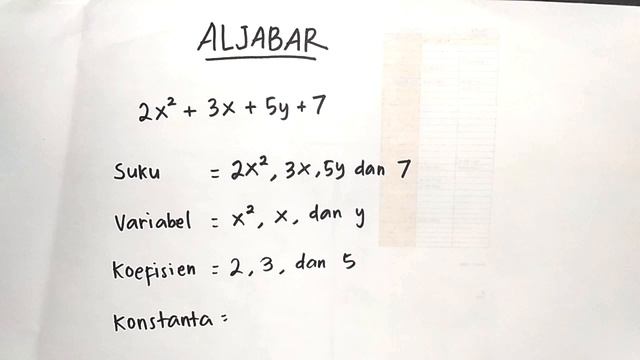 ALJABAR
2x² + 3x + 5y + 7
Suku = 2x², 3x, 5y dan 7
Variabel = x², x, dan y
Koefisien = 2, 3, dan 5
Konstanta =